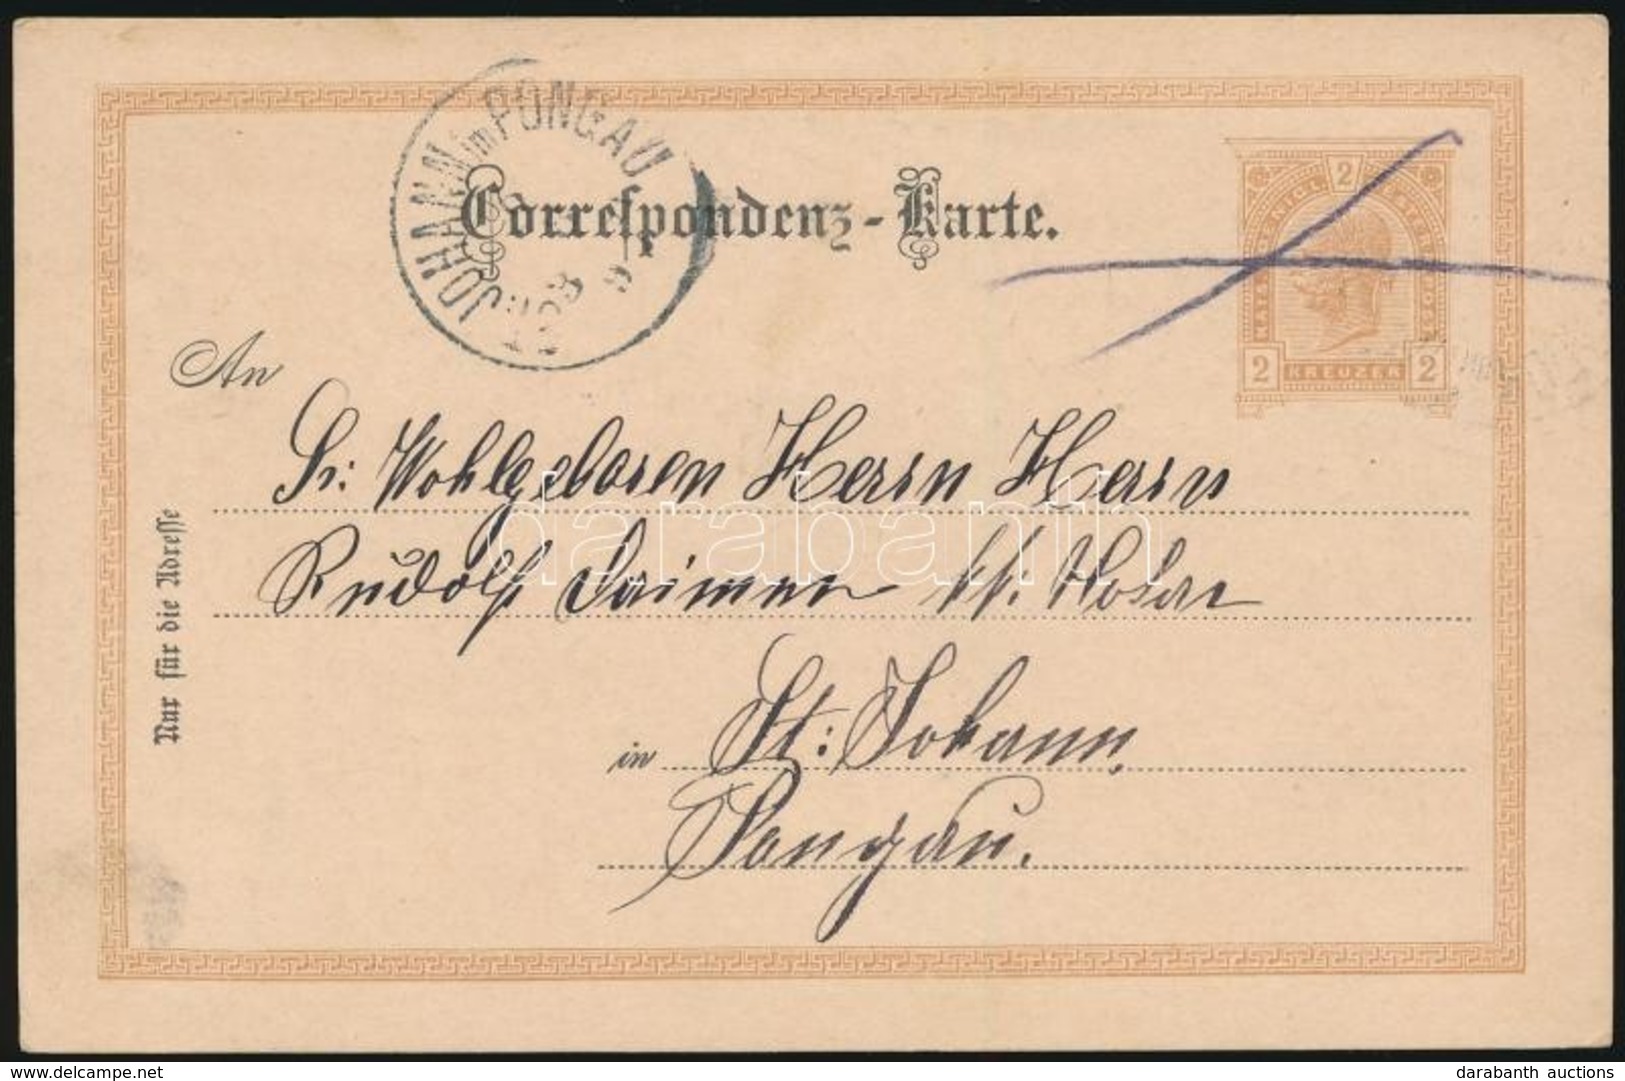 JOHANN im PONGAU
Correspondenz-Karte.
2
KAIS. KÖNIGL. OESTERR. POST
2 KREUZER 2
An
Sr: Wohlgeboren Herrn Herrn
Rudolf
in St: Johann,
Pongau.
Nur für die Adresse
darabanth
darabanth auctions